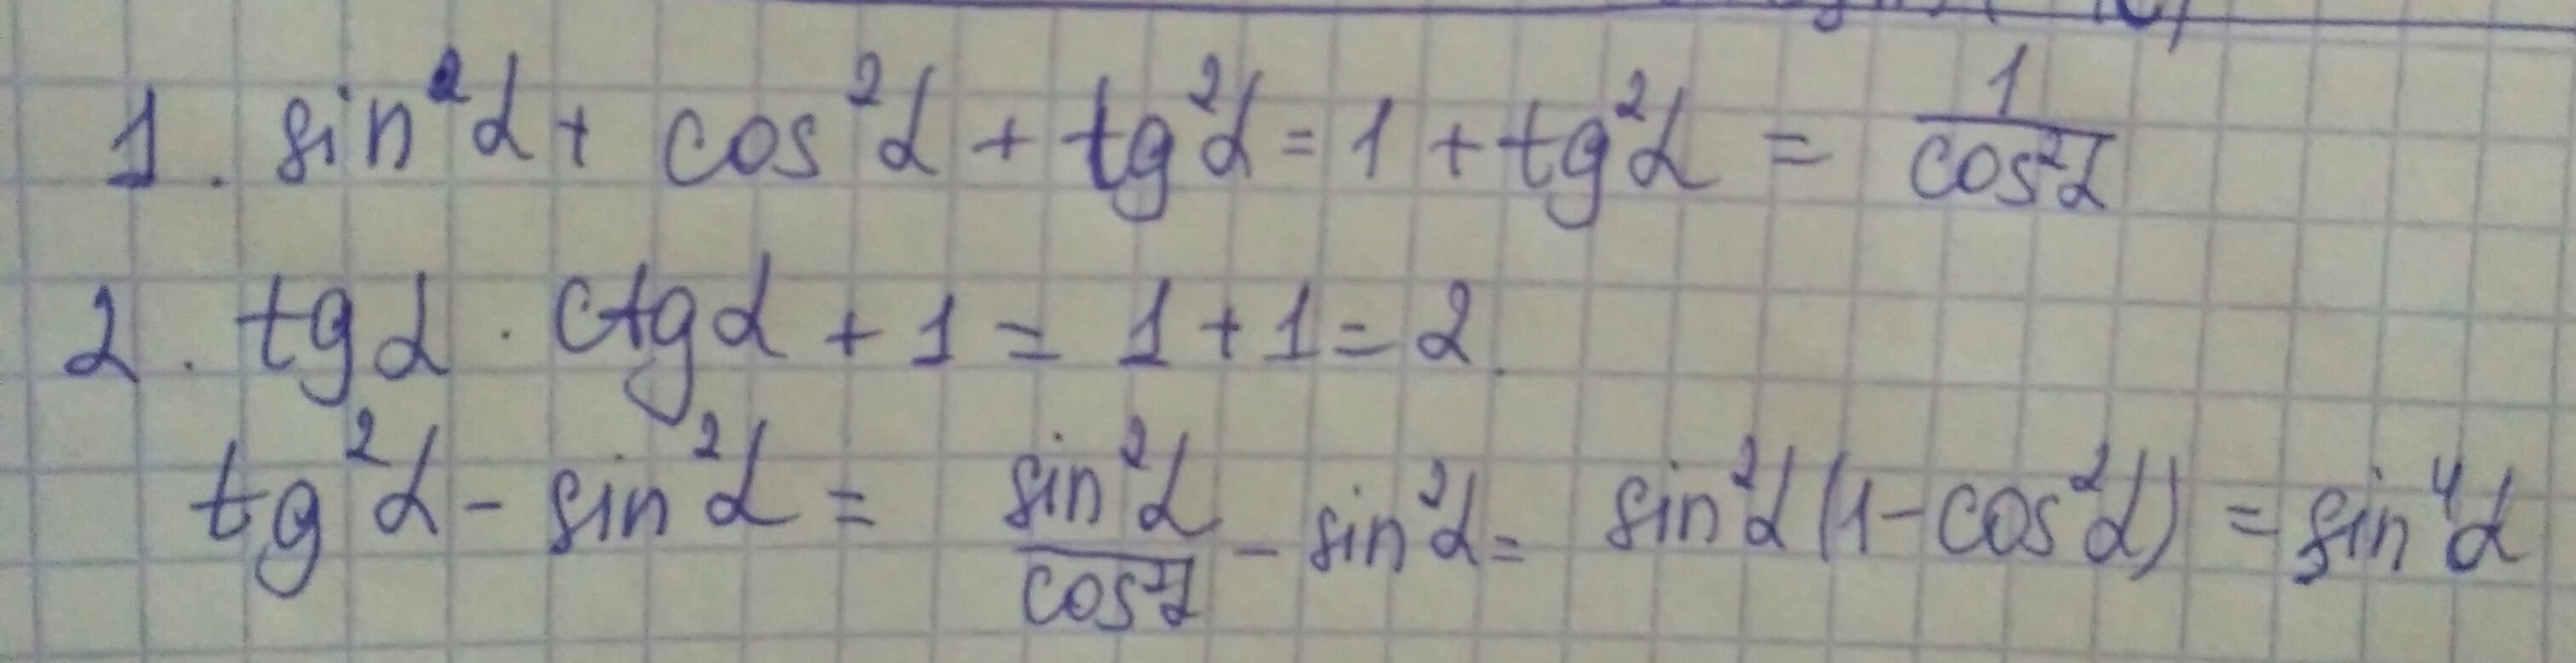 1. sin²α + cos²α + tg²α = 1 + tg²α = 1/cos²α
2. tgα · ctgα + 1 = 1 + 1 = 2.
tg²α - sin²α = sin²α/cos²α - sin²α = sin²α(1-cos²α) = sin⁴α